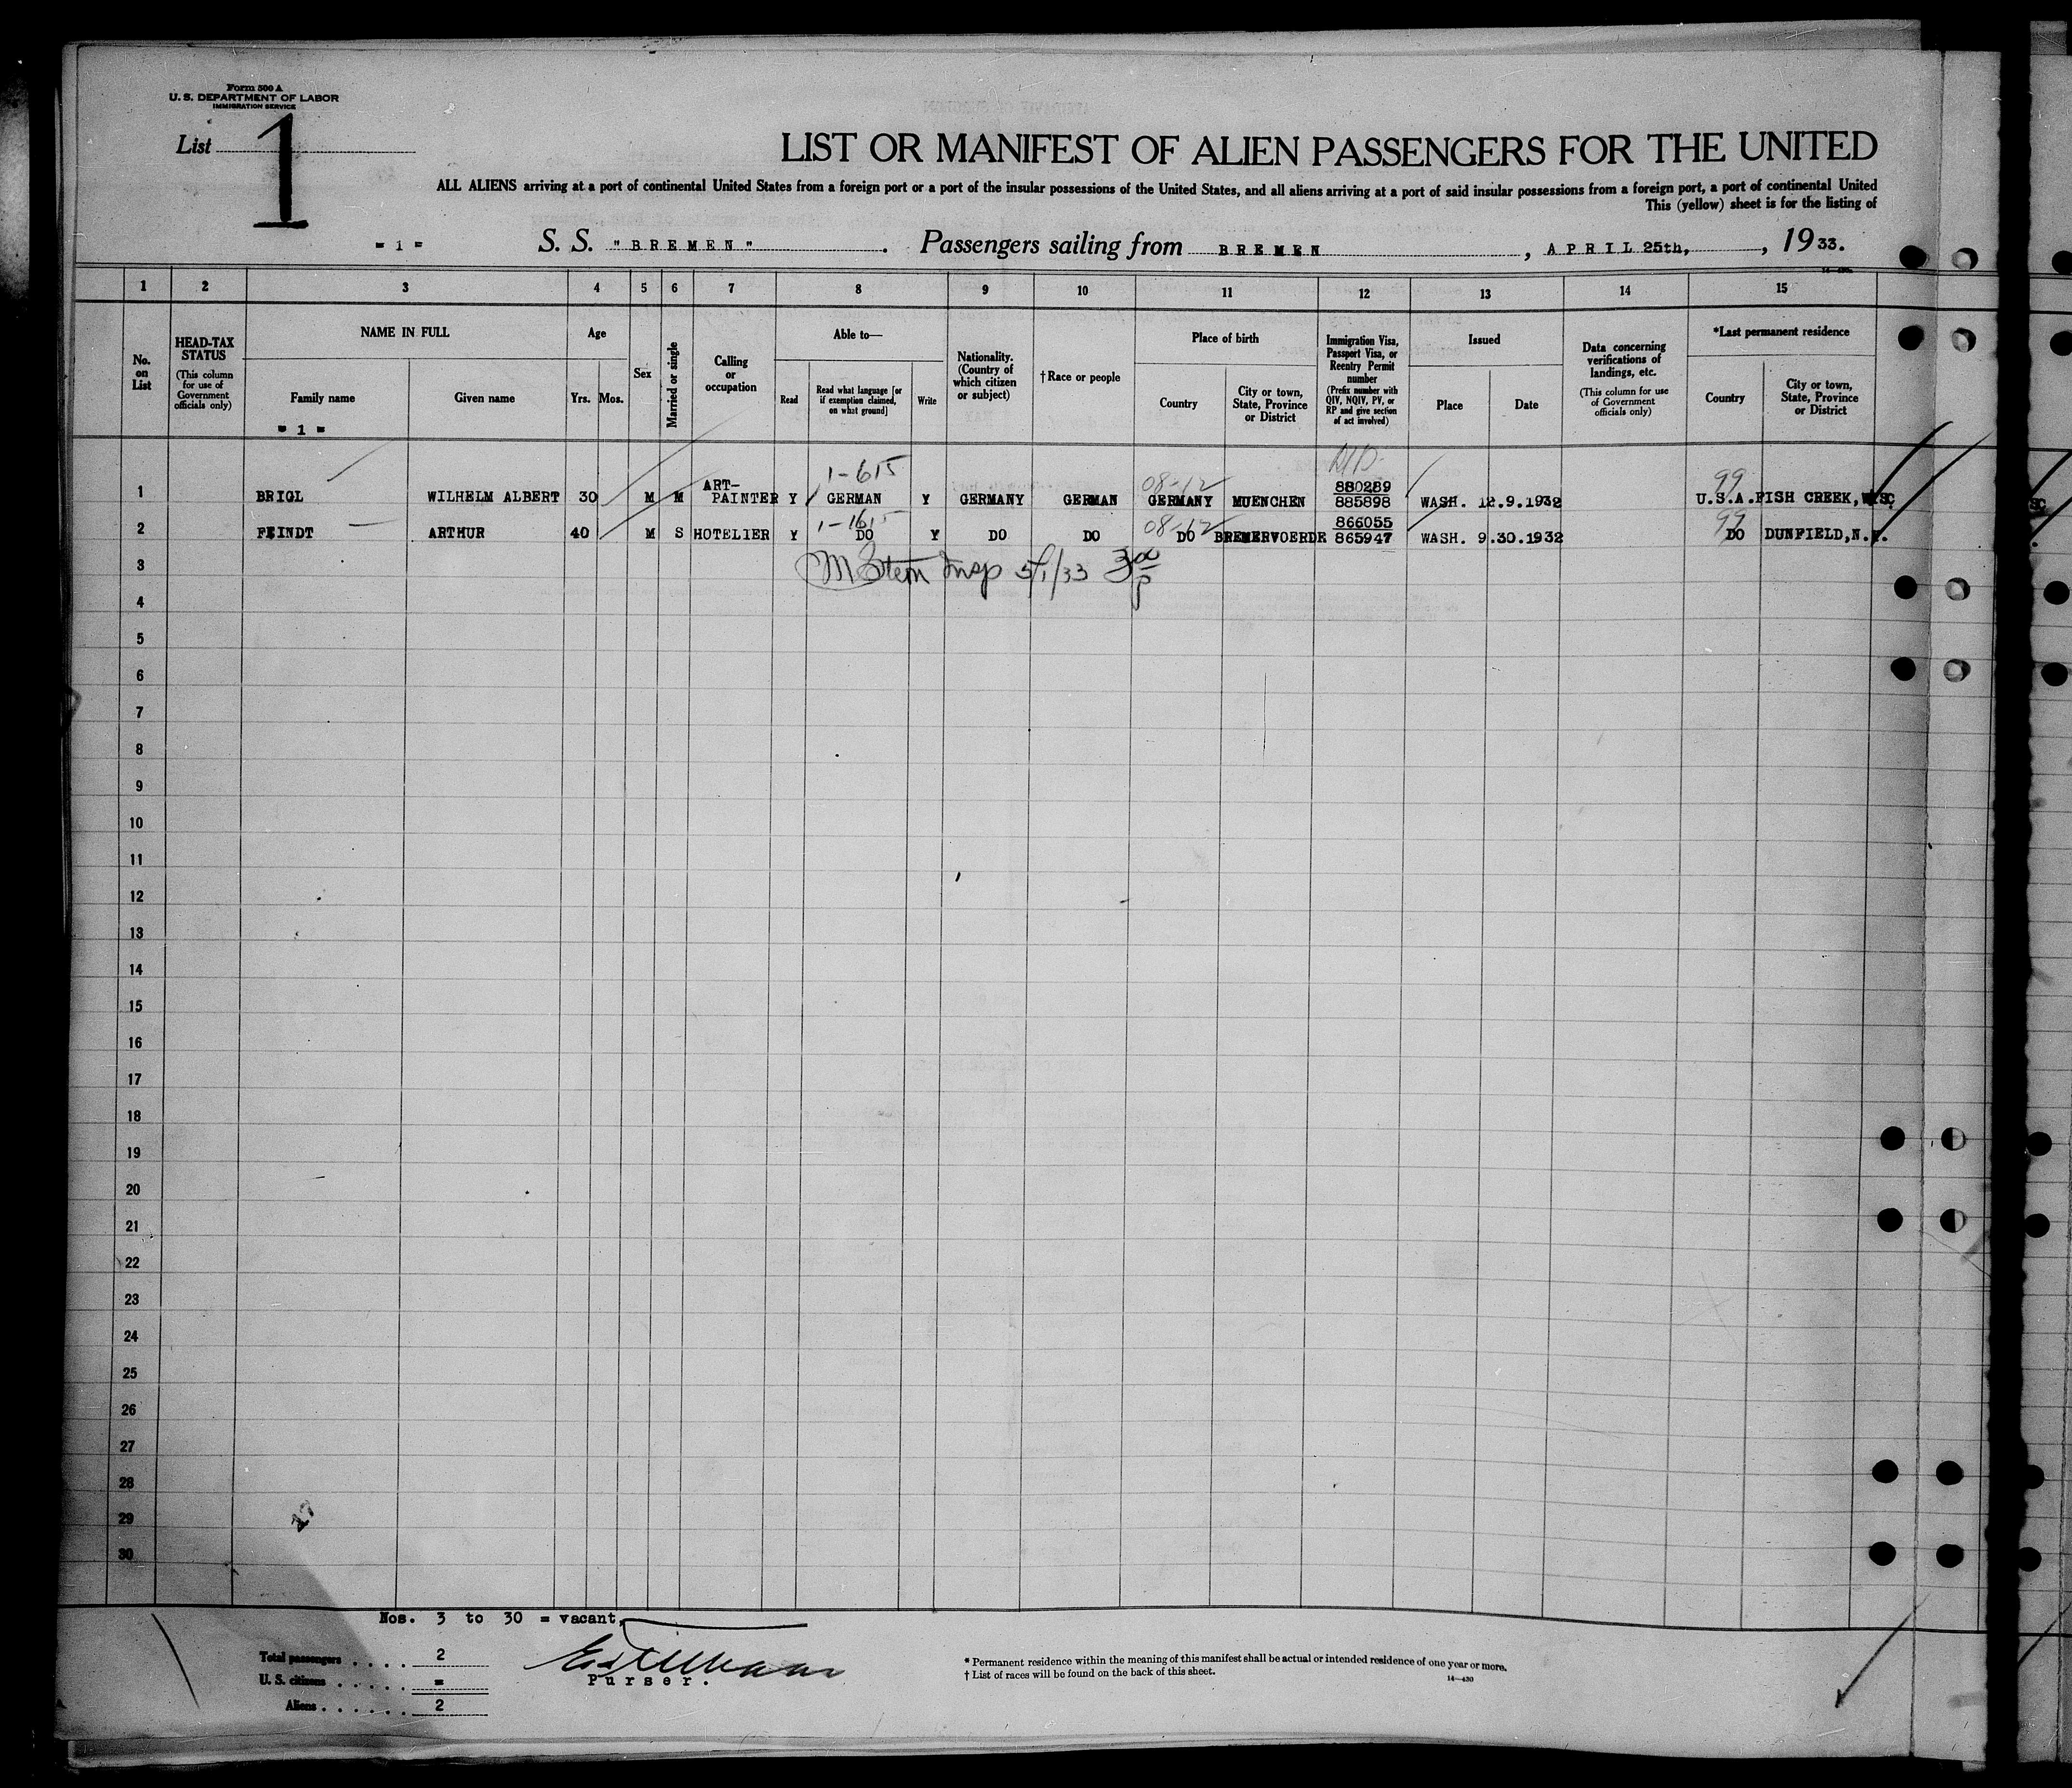 Form 500 A
U. S. DEPARTMENT OF LABOR
IMMIGRATION SERVICE
List 1
LIST OR MANIFEST OF ALIEN PASSENGERS FOR THE UNITED
ALL ALIENS arriving at a port of continental United States from a foreign port or a port of the insular possessions of the United States, and all aliens arriving at a port of said insular possessions from a foreign port, a port of continental United
This (yellow) sheet is for the listing of
= 1 = S. S. "BREMEN". Passengers sailing from BREMEN, APRIL 25th, , 1933.
1 2 3 4 5 6 7 8 9 10 11 12 13 14 15
No. on List
HEAD-TAX STATUS
(This column for use of Government officials only)
NAME IN FULL
Family name
Given name
= 1 =
Age
Yrs. Mos.
Sex
Married or single
Calling or occupation
Able to—
Read
Read what language [or if exemption claimed, on what ground]
Write
Nationality. (Country of which citizen or subject)
†Race or people
Place of birth
Country
City or town, State, Province or District
Immigration Visa, Passport Visa, or Reentry Permit number
(Prefix number with QIV, NQIV, PV, or RP and give section of act involved)
Issued
Place
Date
Data concerning verifications of landings, etc.
(This column for use of Government officials only)
*Last permanent residence
Country
City or town, State, Province or District
1-615 08-12 99
1 BRIGL WILHELM ALBERT 30 M M ART-PAINTER Y GERMAN Y GERMANY GERMAN GERMANY MUENCHEN 880289 885898 WASH. 12.9.1932 U.S.A. FISH CREEK, WISC
1-1615 08-12 99
2 FEINDT ARTHUR 40 M S HOTELIER Y DO Y DO DO DO BREMERVOERDE 866055 865947 WASH. 9.30.1932 DO DUNFIELD, N.Y.
3 Stern Insp 5/1/33 3 00 P
4
5
6
7
8
9
10
11
12
13
14
15
16
17
18
19
20
21
22
23
24
25
26
27
28
29
30
Nos. 3 to 30 = vacant,
Total passengers . . . . 2
U. S. citizens . . . . . =
Aliens . . . . . . 2
Purser.
* Permanent residence within the meaning of this manifest shall be actual or intended residence of one year or more.
† List of races will be found on the back of this sheet.
14—430